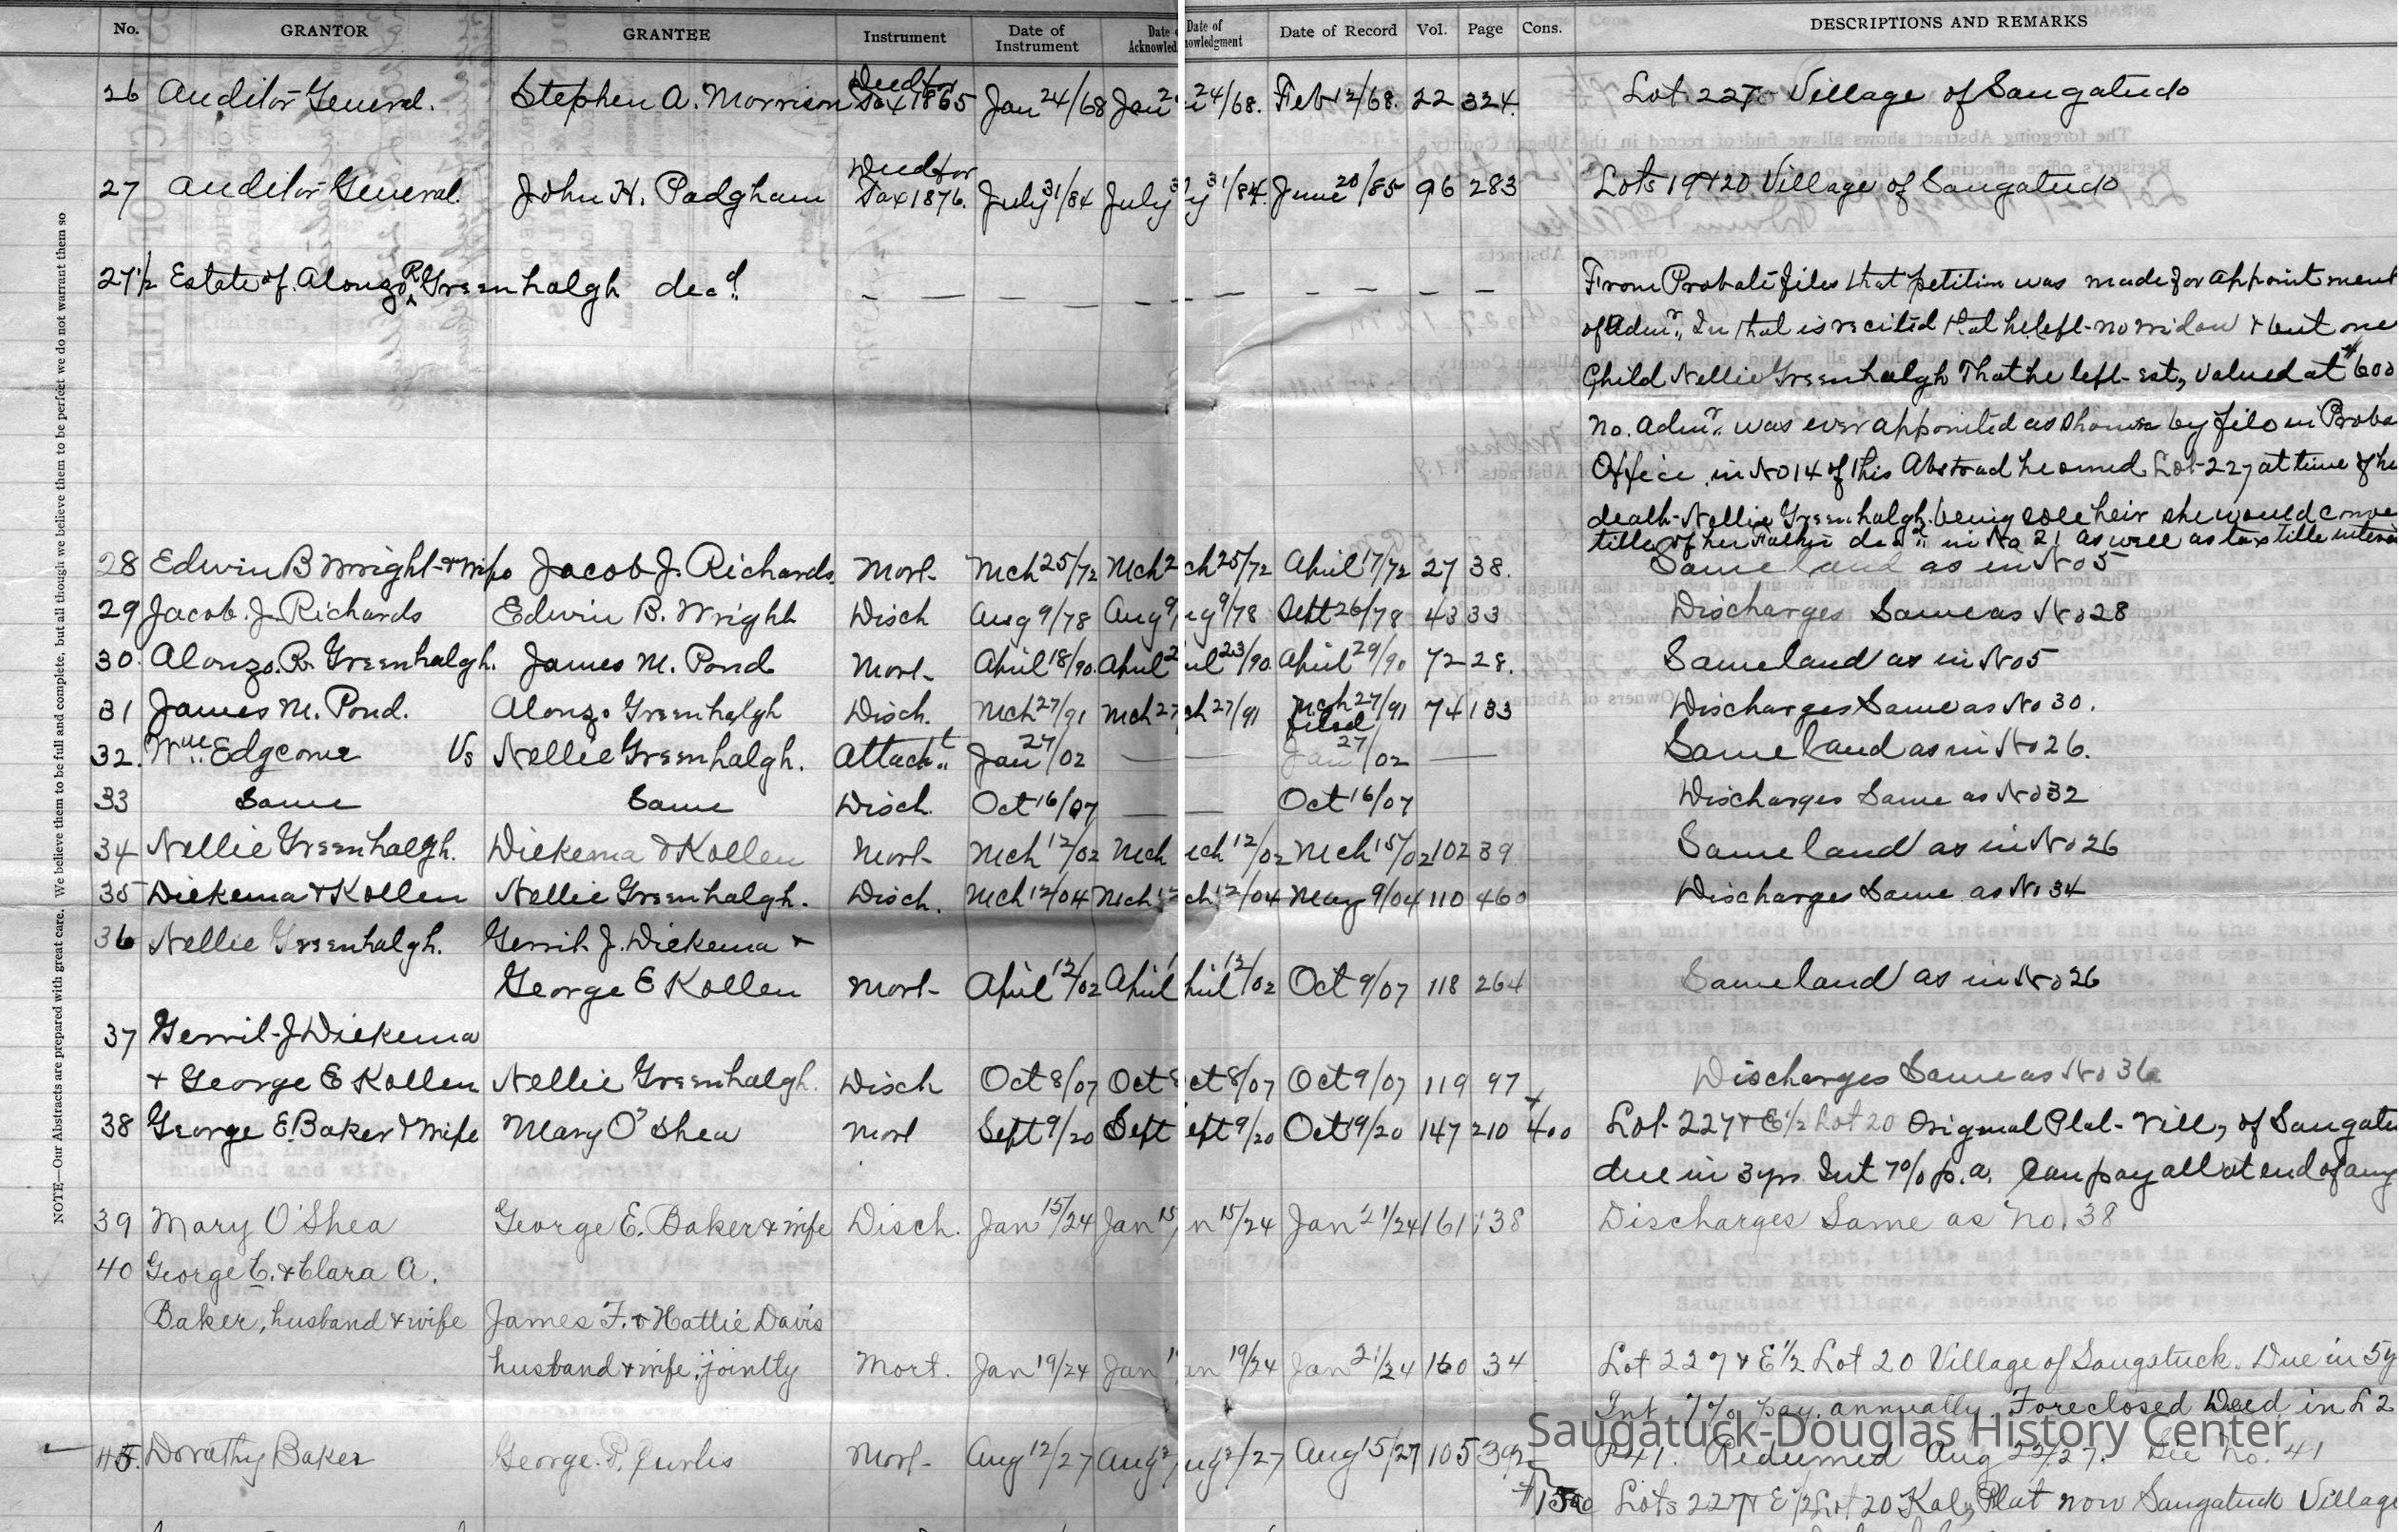 No. GRANTOR GRANTEE Instrument Date of Instrument Date of Acknowled nowledgment Date of Record Vol. Page Cons. DESCRIPTIONS AND REMARKS
26 Auditor General. Stephen A. Morrison Deed for Tax 1865 Jan 24/68 Jan 24/68. Feb 12/68. 22 324. Lot 227 Village of Saugatuck
27 Auditor General. John H. Padgham Deed for Tax 1876. July 31/84 July 31/84. June 20/85 96 283 Lots 19 & 20 Village of Saugatuck
27 1/2 Estate of Alonzo R Greenhalgh dec'd. From Probate files that petition was made for appointment
of Admr. In that is recited that he left no widow & but one
Child Nellie Greenhalgh That he left est, valued at $600
No. Admr. was ever appointed as shown by file in Proba
Office in No 14 of this Abstract he owned Lot 227 at time of hi
death Nellie Greenhalgh being sole heir she would conve
title of her Father decd. in No 21 as well as tax title interes
28 Edwin B Wright & wife Jacob J. Richards Mort Mch 25/72 Mch 25/72 April 17/72 27 38. Same land as in No 5
29 Jacob. J. Richards Edwin B. Wright Disch Aug 9/78 Aug 9/78 Sept 26/78 43 33 Discharges Same as No 28
30. Alonzo. R. Greenhalgh. James M. Pond Mort April 18/90. April 23/90. April 29/90 72 28. Same land as in No 5
31 James M. Pond. Alonzo Greenhalgh Disch. Mch 27/91 Mch 27/91 Mch 27/91 74 133 Discharges Same as No 30.
32. Wm. Edgcome Vs Nellie Greenhalgh. Attach't. Jan 27/02 — filed Jan 27/02 — Same land as in No 26.
33 Same Same Disch. Oct 16/07 — Oct 16/07 Discharges Same as No 32
34 Nellie Greenhalgh. Diekema & Kollen Mort Mch 12/02 Mch 12/02 Mch 15/02 102 39 Same land as in No 26
35 Diekema & Kollen Nellie Greenhalgh. Disch. Mch 12/04 Mch 12/04 May 9/04 110 460 Discharges Same as No 34
36 Nellie Greenhalgh. Gerrit J. Diekema &
George E Kollen Mort April 12/02 April 12/02 Oct 9/07 118 264 Same land as in No 26
37 Gerrit J Diekema
& George E Kollen Nellie Greenhalgh. Disch Oct 8/07 Oct 8/07 Oct 9/07 119 97 Discharges Same as No 36
38 George E. Baker & wife Mary O'Shea Mort Sept 9/20 Sept 9/20 Oct 19/20 147 210 400 Lot 227 & E 1/2 Lot 20 Original Plat Vill, of Saugatu
due in 3 yrs Int 7% p.a. Can pay all at end of any
39 Mary O'Shea George E. Baker & wife Disch. Jan 15/24 Jan 15/24 Jan 21/24 161 138 Discharges Same as no. 38
40 George E. & Clara A.
Baker, husband & wife James F. & Hattie Davis
husband & wife, jointly Mort. Jan 19/24 Jan 19/24 Jan 21/24 160 34 Lot 227 & E 1/2 Lot 20 Village of Saugatuck. Due in 5 y
Int 7% pay. annually. Foreclosed Deed in L 2
45. Dorothy Baker George. P. Mort Aug 12/27 Aug 12/27 Aug 15/27 105 392 P 41. Redeemed Aug 22/27. See No. 41
$1500 Lots 227 & E 1/2 Lot 20 Kal, Plat now Saugatuck Village
NOTE.—Our Abstracts are prepared with great care. We believe them to be full and complete, but all though we believe them to be perfect we do not warrant them so
Saugatuck-Douglas History Center